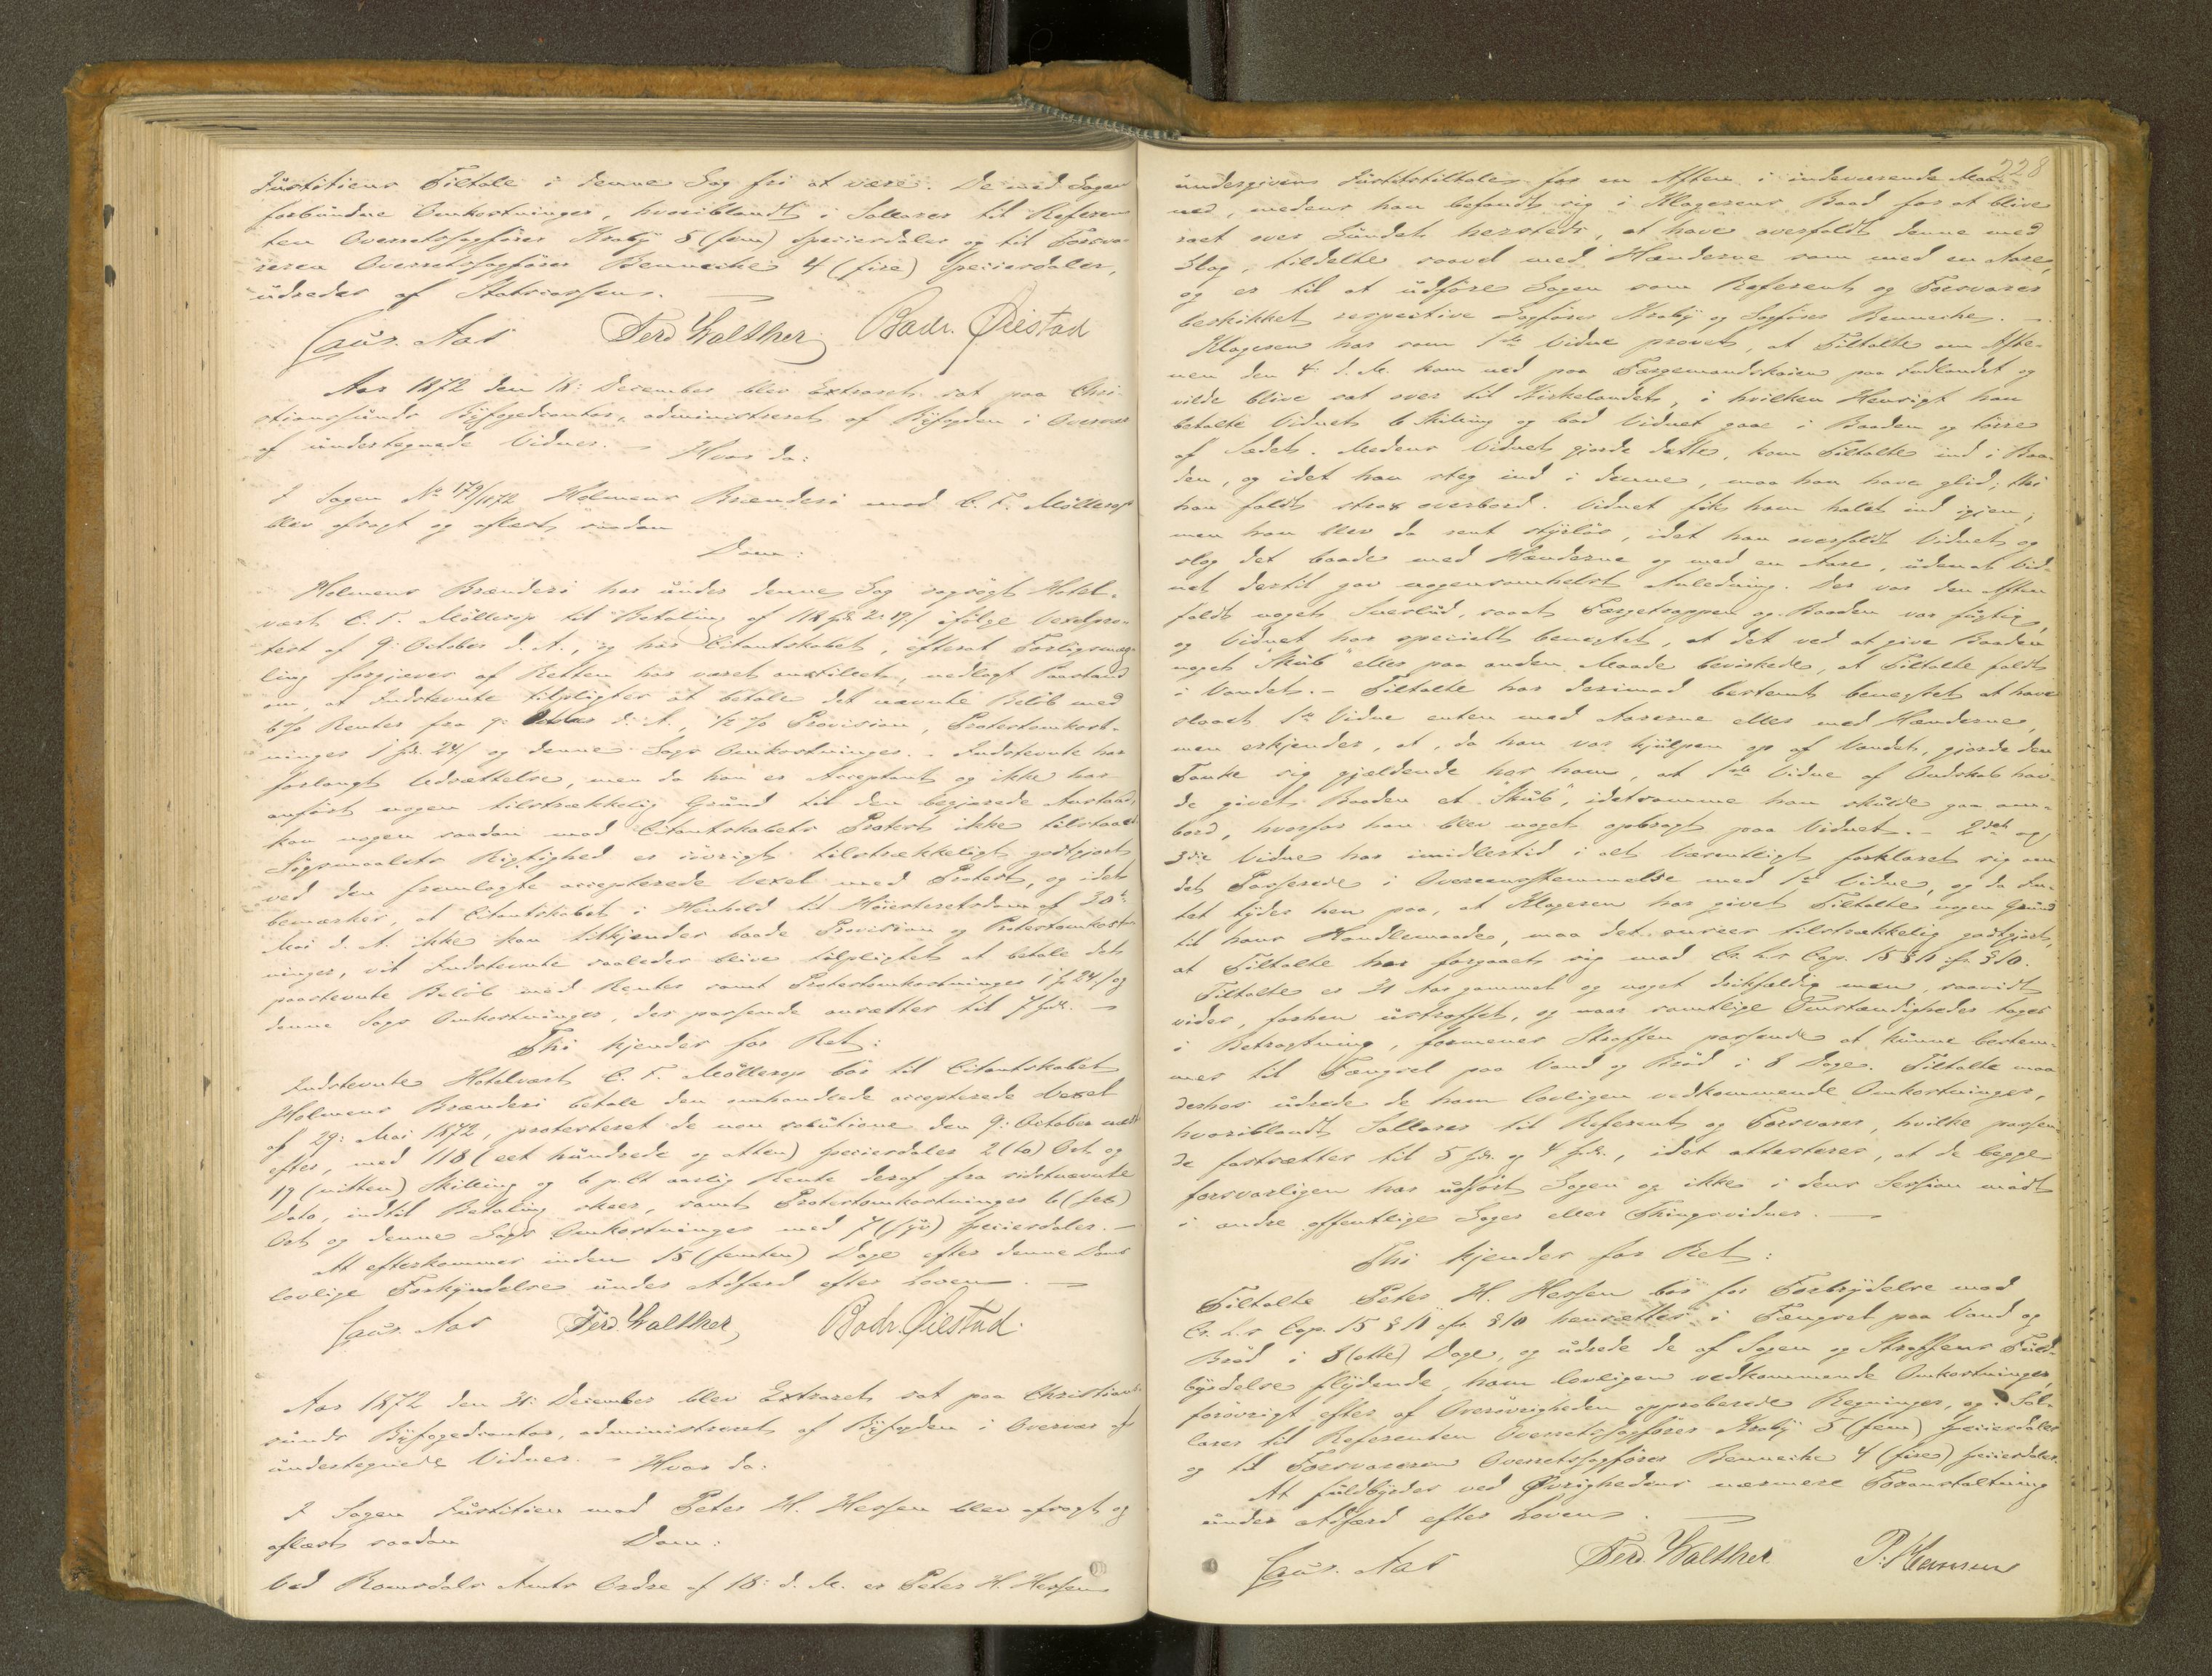 Justitiens Tiltale i denne Sag fri at være. De med Sagen
forbundne Omkostninger, hvoriblandt i Sallarer til Referen
ten Overretssagfører Kraby 5 (fem) Speciesdaler og til Forsva-
reren Overretssagfører Benneche 4 (fire) Speciesdaler,
udredes af Statskassen.
Laur. Aas Ferd Walther Badr. Øiestad
Aar 1872 den 18: December blev Extraret sat paa Chri-
stianssunds Byfogedcontor, administreret af Byfogden i Overvær
af undertegnede Vidner. – Hvor da:
I Sagen No 179/1872 Holmens Brænderi mod C. F. Möllerop
blev afsagt og aflæst saadan
Dom:
Holmens Brænderi har under denne Sag sagsögt Hotel-
vært C. F. Möllerop til Betaling af 118 Spd. 2 19 ifölge Vexelpro-
test af 9: October d. A., og har Citantskabet, efterat Forligsmæg-
ling forgjæves af Retten har været anstillet, nedlagt Paastand
om, at Indstevnte tilpligtes at betale det nævnte Belöb med
6 % Renter fra 9: October d. A., 1/2 % Provision, Protestomkost-
ninger 1 Spd. 24 og denne Sags Omkostninger. – Indstevnte har
forlangt Udsættelse, men da han er Acceptant og ikke har
anfört nogen tilstrækkelig Grund til den begjærede Anstand,
kan nogen saadan mod Citantskabets Protest ikke tilstaaes.
Sögsmaalets Rigtighed er iövrigt tilstrækkeligt godtgjort
ved den fremlagte accepterede Vexel med Protest, og idet
bemærkes, at Citantskabet i Henhold til Höiesteretsdom af 30te
Mai d. A. ikke kan tilkjendes baade Provision og Protestomkost-
ninger, vil Indstevnte saaledes blive tilpligtet at betale det
paastevnte Belöb med Renter samt Protestomkostninger 1 24 og
denne Sags Omkostninger, der passende ansættes til 7 Spd. –
Thi kjendes for Ret:
Indstevnte Hotelvært C. F. Möllerop bör til Citantskabet
Holmens Brænderi betale den omhandlede accepterede Vexel
af 29: Mai 1872, protesteret de non solutione den 9: October næst
efter, med 118 (eet hundrede og atten) Speciesdaler 2 (to) Ort og
19 (nitten) Skilling og 6 p. Ct aarlig Rente deraf fra sidstnævnte
Dato, indtil Betaling skeer, samt Protestomkostninger 6 (sex)
Ort og denne Sags Omkostninger med 7 (syv) Speciesdaler. –
At efterkommes inden 15 (femten) Dage efter denne Doms
lovlige Forkyndelse under Adfærd efter Loven. –
Laur. Aas Ferd. Walther, Badr. Øiestad.
Aar 1872 den 31: December blev Extraret sat paa Christians-
sunds Byfogedcontor, administreret af Byfogden i Overvær af
undertegnede Vidner. – Hvor da:
I Sagen Justitien mod Peter H. Hessen blev afsagt og
aflæst saadan Dom:
Ved Romsdals Amts Ordre af 18: d. M. er Peter H. Hessen
228
undergiven Justitstiltale for en Aften i indeværende Maa-
ned, medens han befandt sig i Klagerens Baad for at blive
roet over Sundet hersteds, at have overfaldt denne med
Slag, tildelte saavel med Hænderne som med en Aare,
og er til at udföre Sagen som Referent og Forsvarer
beskikket respective Sagförer Kraby og Sagförer Benneche. –
Klageren har som 1ste Vidne provet, at Tiltalte om Afte-
nen den 4: d. M. kom ned paa Færgemandskaien paa Indlandet og
vilde blive sat over til Kirkelandet, i hvilken Hensigt han
betalte Vidnet 6 Skilling og bad Vidnet gaae i Baaden og törre
af Sædet. Medens Vidnet gjorde dette, kom Tiltalte ind i Baa-
den, og idet han steg ind i denne, maa han have glid; thi
han faldt strax overbord. Vidnet fik ham halet ind igjen;
men han blev da rent styrlös, idet han overfaldt Vidnet og
slog det baade med Hænderne og med en Aare, uden at Vid-
net dertil gav nogensomhelst Anledning. Der var den Aften
faldt noget Sneslud, saaat Færgetrappen og Baaden var fugtig,
og Vidnet har specielt benegtet, at det ved at give Baaden
noget "Skub" eller paa anden Maade bevirkede, at Tiltalte faldt
i Vandet. – Tiltalte har derimod bestemt benegtet at have
slaaet 1ste Vidne enten med Aarerne eller med Hænderne,
men erkjender, at, da han var hjulpen op af Vandet, gjorde den
Tanke sig gjældende hos ham, at 1ste Vidne af Ondskab hav-
de givet Baaden et "Skub", idetsamme han skulde gaa om-
bord, hvorfor han blev noget opbragt paa Vidnet. – 2det og
3die Vidne har imidlertid i alt Væsentligt forklaret sig om
det Passerede i Overeensstemmelse med 1ste Vidne, og da In-
tet tyder hen paa, at Klageren har givet Tiltalte nogen Grund
til hans Handlemaade, maa det ansees tilstrækkelig godtgjort,
at Tiltalte har forgaaet sig mod Cr. L.s Cap. 15 § 11 cfr. § 10.
Tiltalte er 31 Aar gammel og noget drikfældig men, saavidt
vides, forhen ustraffet, og naar samtlige Omstændigheder tages
i Betragtning, formenes Straffen passende at kunne bestem-
mes til Fængsel paa Vand og Bröd i 8 Dage. Tiltalte maa
derhos udrede de ham lovligen vedkommende Omkostninger,
hvoriblandt Sallarer til Referent og Forsvarer, hvilke passen-
de fastsættes til 5 Spd. og 4 Spd., idet attesteres, at de begge
forsvarligen har udfört Sagen og ikke i dens Session mödt
i andre offentlige Sager eller Thingsvidner. –
Thi kjendes for Ret:
Tiltalte Peter H. Hessen bör for Forbrydelse mod
Cr. L.s Cap. 15 § 11 cfr. § 10 hensættes i Fængsel paa Vand og
Bröd i 8 (otte) Dage, og udrede de af Sagen og Straffens Fuld-
byrdelse flydende, ham lovligen vedkommende Omkostninger,
forövrigt efter af Överövrigheden approberede Regninger, og i Sal-
larer til Referenten Overretssagförer Kraby 5 (fem) Speciesdaler
og til Forsvareren Overretssagförer Benneche 4 (fire) Speciesdaler.
At fuldbyrdes ved Øvrighedens nærmere Foranstaltning
under Adfærd efter Loven. –
Laur. Aas Ferd. Walther P. Hansen